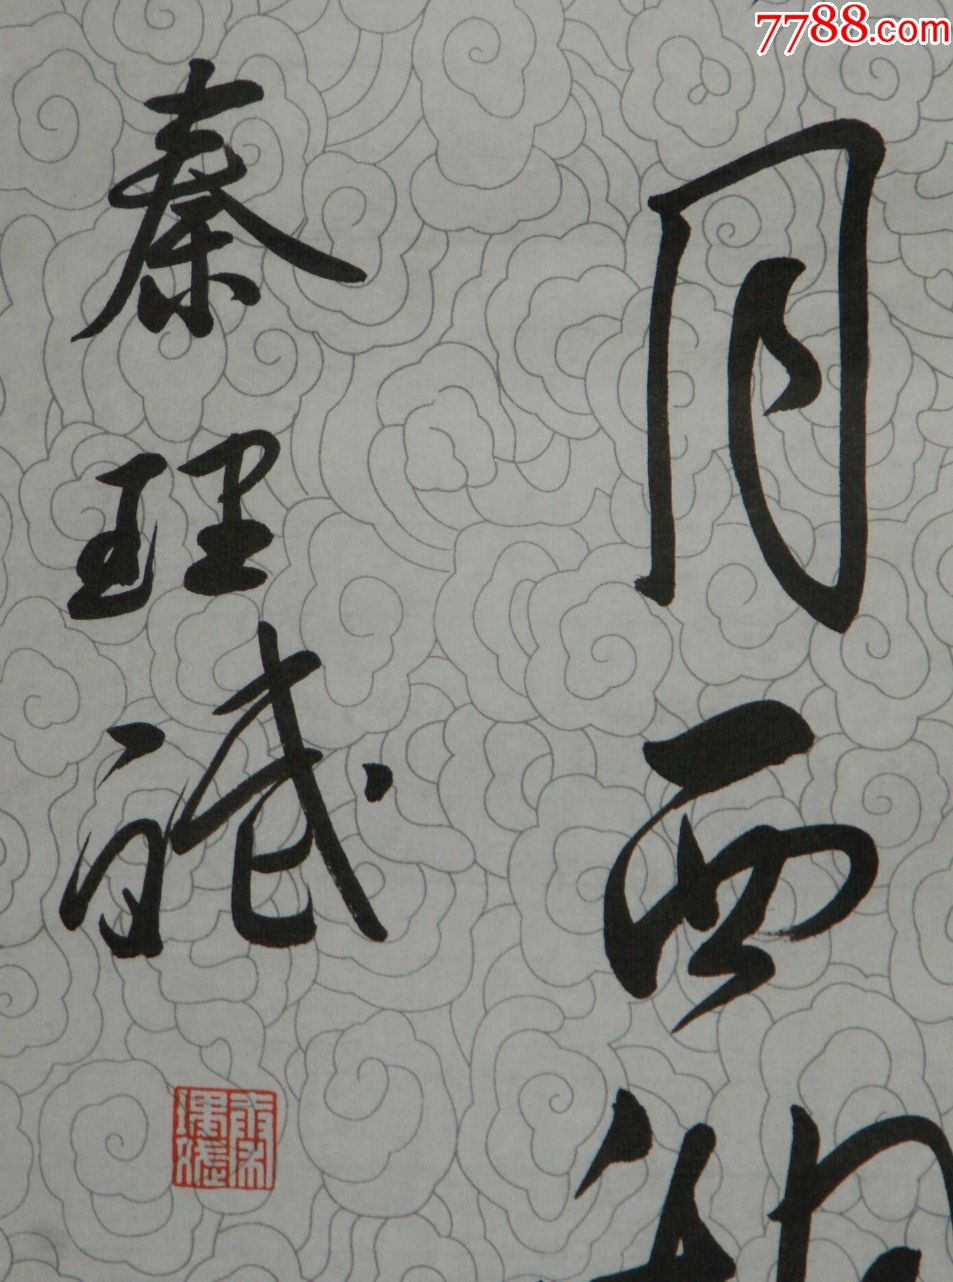 7788.com
月西
秦理斌